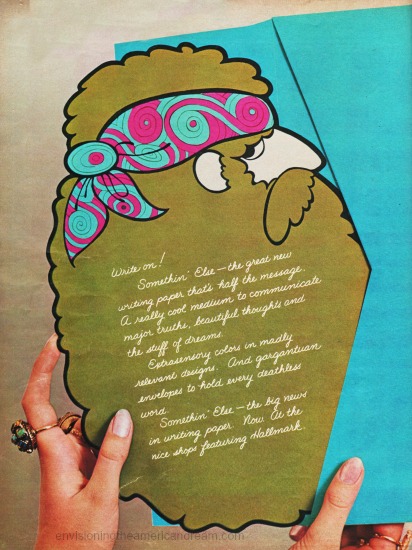 Write on!
Somethin' Else—the great new
writing paper that's half the message.
A really cool medium to communicate
major truths, beautiful thoughts and
the stuff of dreams.
Extrasensory colors in madly
relevant designs. And gargantuan
envelopes to hold every deathless
word.
Somethin' Else—the big news
in writing paper. Now. At the
nice shops featuring Hallmark.
envisioningtheamericandream.com